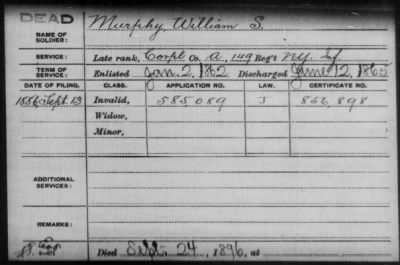 DEAD
NAME OF SOLDIER: Murphy, William S.
SERVICE: Late rank, Corpl Co. A, 149 Reg't N.Y. Inf.
TERM OF SERVICE: Enlisted Jan. 2, 1862 Discharged June 12, 1865
DATE OF FILING. CLASS. APPLICATION NO. LAW. CERTIFICATE NO.
1886 Sept. 13 Invalid, 585 089 J 866,898
Widow,
Minor,
ADDITIONAL SERVICES:
REMARKS:
Died Sept. 24, 1896, at